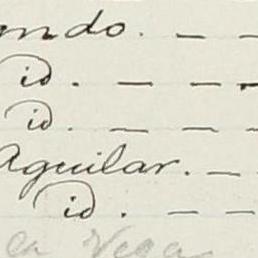 ndo. — —
id. — — -
id. — — -
Aguilar. — -
id. — —
la Vega